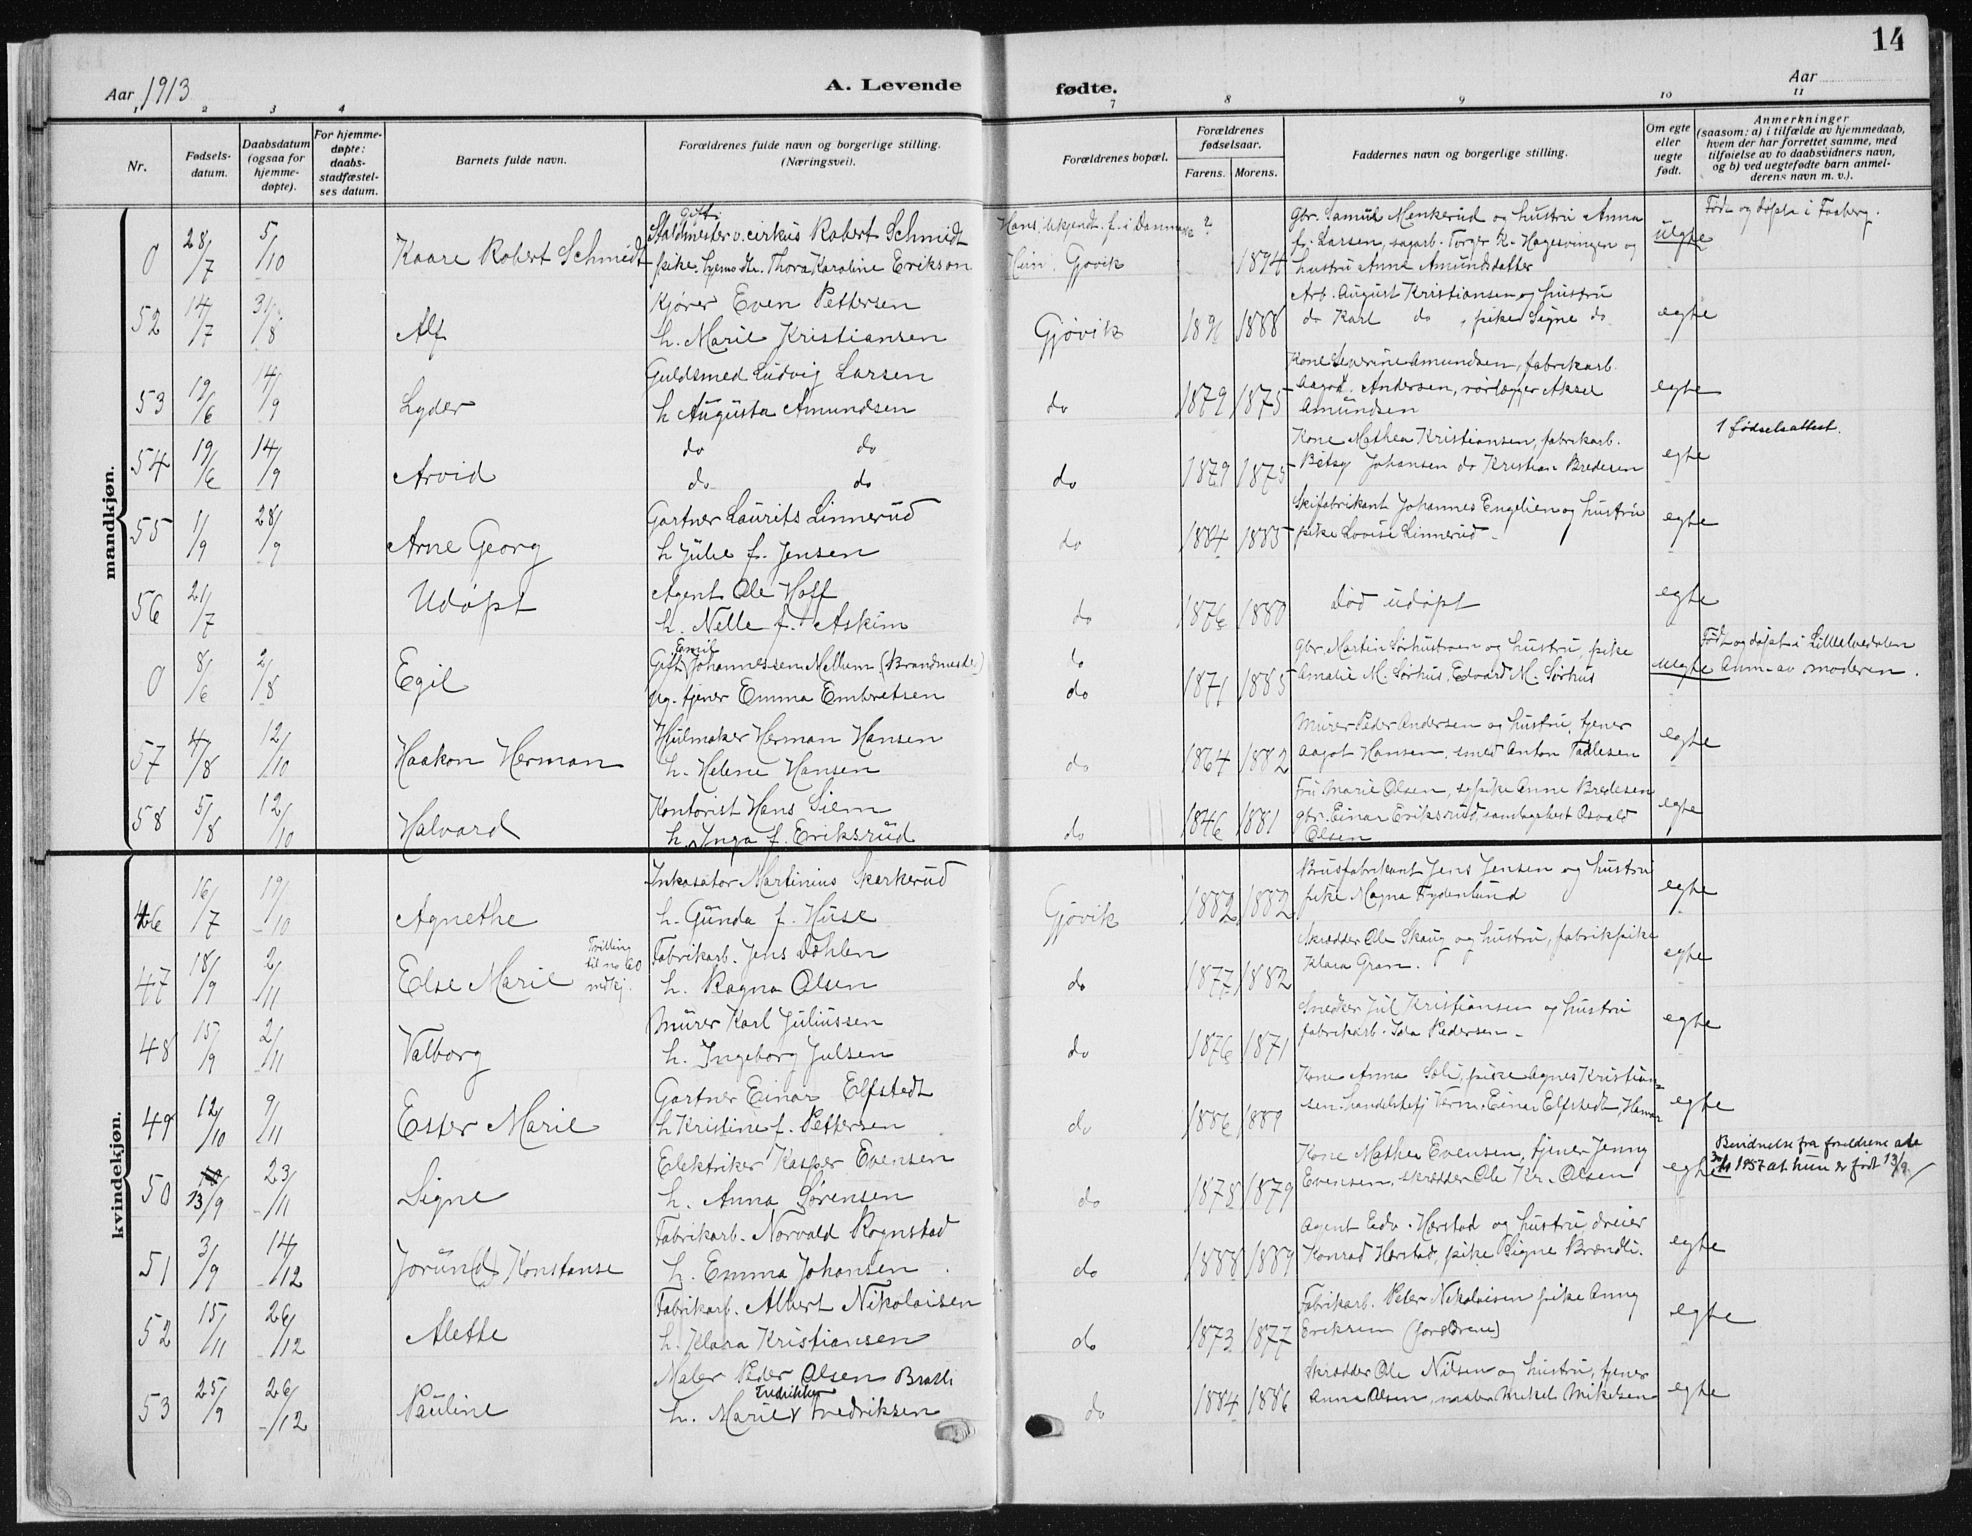 14
Aar 1913
A. Levende
fødte.
Aar
1 2 3 4 7 8 9 10 11
Nr.
Fødsels-
datum.
Daabsdatum
(ogsaa for
hjemme-
døpte).
For hjemme-
døpte:
daabs-
stadfæstel-
ses datum.
Barnets fulde navn.
Forældrenes fulde navn og borgerlige stilling.
(Næringsvei).
Forældrenes bopæl.
Forældrenes
fødselsaar.
Farens. Morens.
Faddernes navn og borgerlige stilling.
Om egte
eller
uegte
født.
Anmerkninger
(saasom: a) i tilfælde av hjemmedaab,
hvem der har forrettet samme, med
tilføielse av to daabsvidners navn,
og b) ved uegtefødte barn anmel-
derens navn m. v.).
mandkjøn.
0 28/7 5/10 Kaare Robert Schmidt
gift.
Staldmester v. cirkus Robert Schmidt
pike. hjemv. dtr. Thora Karoline Erikson
Hans: ubkjendt. f. i Danmark ?
Hun: Gjøvik 1894
Gbr. Samuel Menkerud og hustru Anna
f. Larsen, sagarb. Torger K. Hagesvingen og
hustru Anne Amundsdatter
uegte
Født og døpt i Faaberg.
52 14/7 31/8 Alf
Kjører Even Pettersen
h. Marie Kristiansen
Gjøvik 1891 1888
Arb. August Kristiansen og hustru
do Karl do, pike Signe do.
egte
53 19/6 14/9 Lyder
Guldsmed Ludvig Larsen
h Augusta Amundsen
do 1879 1875
Kone Severine Amundsen, fabrikarb.
Aagot Andersen, rørlægger Aksel
Amundsen
egte
54 19/6 14/9 Arvid
do do
do do
do 1879 1875
Kone Mathea Kristiansen, fabrikarb.
Betsy Johansen do Kristian Bredesen
egte
1 fødselsattest.
55 1/9 28/9 Arne Georg
Gartner Laurits Linnerud
h Julie f. Jensen
do 1884 1885
Skifabrikant Johannes Engelien og hustru
pike Lovise Linnerud.
egte
56 21/7 Udøpt
Agent Ole Hoff
h. Nelle f. Askim
do 1876 1880
død udøpt
egte
0 8/6 2/8 Egil
Emil
Gift. Johannessen Mellum (Brandmester)
Ug. tjener Emma Embretsen
do
do 1871 1885
Gbr. Martin Sørhustroen og hustru, pike
Amalie M. Sørhus, Edvard M. Sørhus
uegte
Født og døpt i Lilleelvedalen
Anm. av moderen.
57 4/8 12/10 Haakon Herman
Hjulmaker Herman Hansen
h. Helene Hansen
do 1864 1882
Murer Peder Andersen og hustru, tjener
Aagot Hansen, smed Anton Tallesen
egte
58 5/8 12/10 Halvard
Kontorist Hans Siem
h. Inga f. Eriksrud
do 1846 1881
Fru Marie Olsen, pike Anne Bredesen
gbr. Einar Eriksrud, Osvald
Olsen
egte
kvindekjøn.
46 16/7 19/10 Agnethe
Inkasator Martinius Skarkerud
h. Gunda f. Huse
Gjøvik 1882 1882
Brusfabrikant Jens Jensen og hustru
pike Magna Frydenlund
egte
47 18/9 2/11 Else Marie
Tvilling
til no 60
mdkj.
Fabrikarb. Jens Dahlen
h. Ragna Olsen
do 1877 1882
Skrædder Ole Skaug og hustru, fabrikpike
Klara Gran.
egte
48 15/9 2/11 Valborg
Murer Karl Juliussen
h. Ingeborg Julsen
do 1876 1871
Snedker Jul Kristiansen og hustru
fabrikarb. Ida Pedersen.
egte
49 12/10 9/11 Ester Marie
Gartner Einar Elfstedt
h Kristine f. Pettersen
do 1886 1889
Kone Anna Soli, pike Agnes Kristian-
sen, handelsbetj. Einar Elfstedt, Hamar
egte
50 13/9 23/11 Signe
Elektriker Kasper Evensen
h. Anna Sørensen
do 1878 1879
Kone Mathea Evensen, tjener Jenny
Evensen, skrædder Ole Kr. Olsen
egte
Bevidnelse fra foreldrene
1957 at hun er født 13/9.
51 3/9 14/12 Jorun(d) Konstanse
Fabrikarb. Norvald Rognstad
h. Emma Johansen
do 1888 1889
Agent Edv. Harstad og hustru, dreier
Konrad Harstad, pike Signe Brændli.
egte
52 15/11 26/12 Alette
Fabrikarb. Albert Nikolaisen
h. Klara Kristiansen
do 1873 1877
Fabrikarb. Peter Nikolaisen pike Anny
Eriksen (forældrene)
egte
53 25/9 26/12 Pauline
Maler Peder Olsen Brasli
Fredrikke
h. Marie v Fredriksen
do 1884 1886
Skrædder Ole Nilsen og hustru, tjener
Anna Olsen, maler Mikel Mikelsen
egte